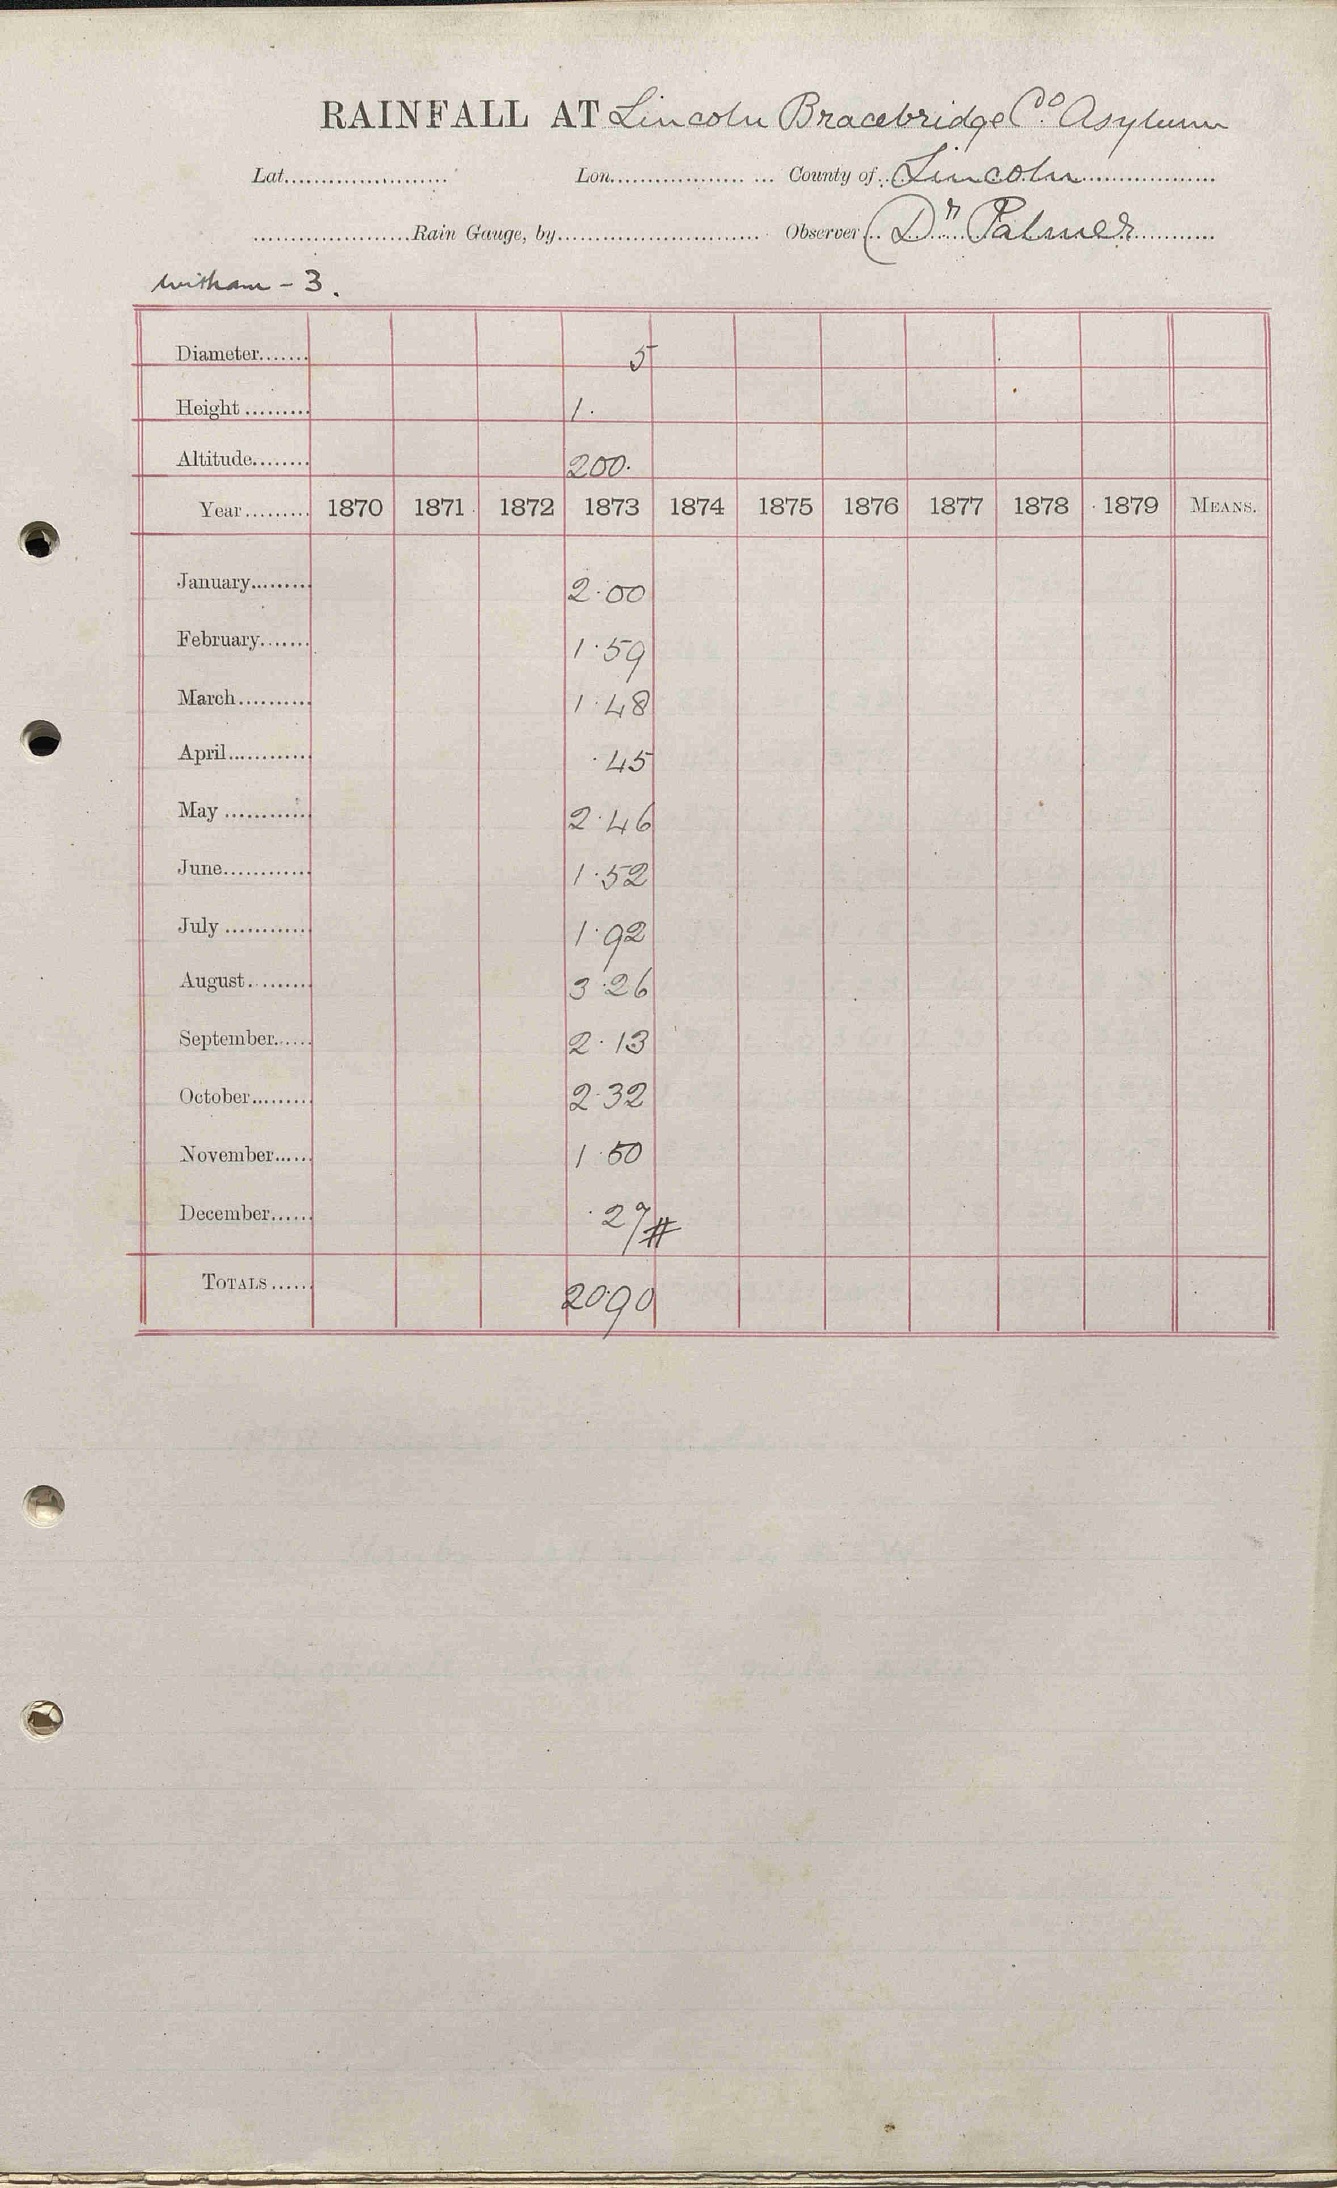 RAINFALL AT Lincoln Bracebridge Co. Asylum
Lat...................... Lon.................. ... County of Lincoln
......................Rain Gauge, by............................ Observer (Dr Palmer
Witham - 3.
Diameter....... 5
Height ......... 1.
Altitude........ 200.
Year......... 1870 1871 1872 1873 1874 1875 1876 1877 1878 1879 MEANS.
January......... 2.00
February....... 1.59
March.......... 1.48
April............ .45
May ............ 2.46
June............ 1.52
July ............ 1.92
August......... 3.26
September...... 2.13
October......... 2.32
November...... 1.50
December...... .27#
TOTALS...... 20.90